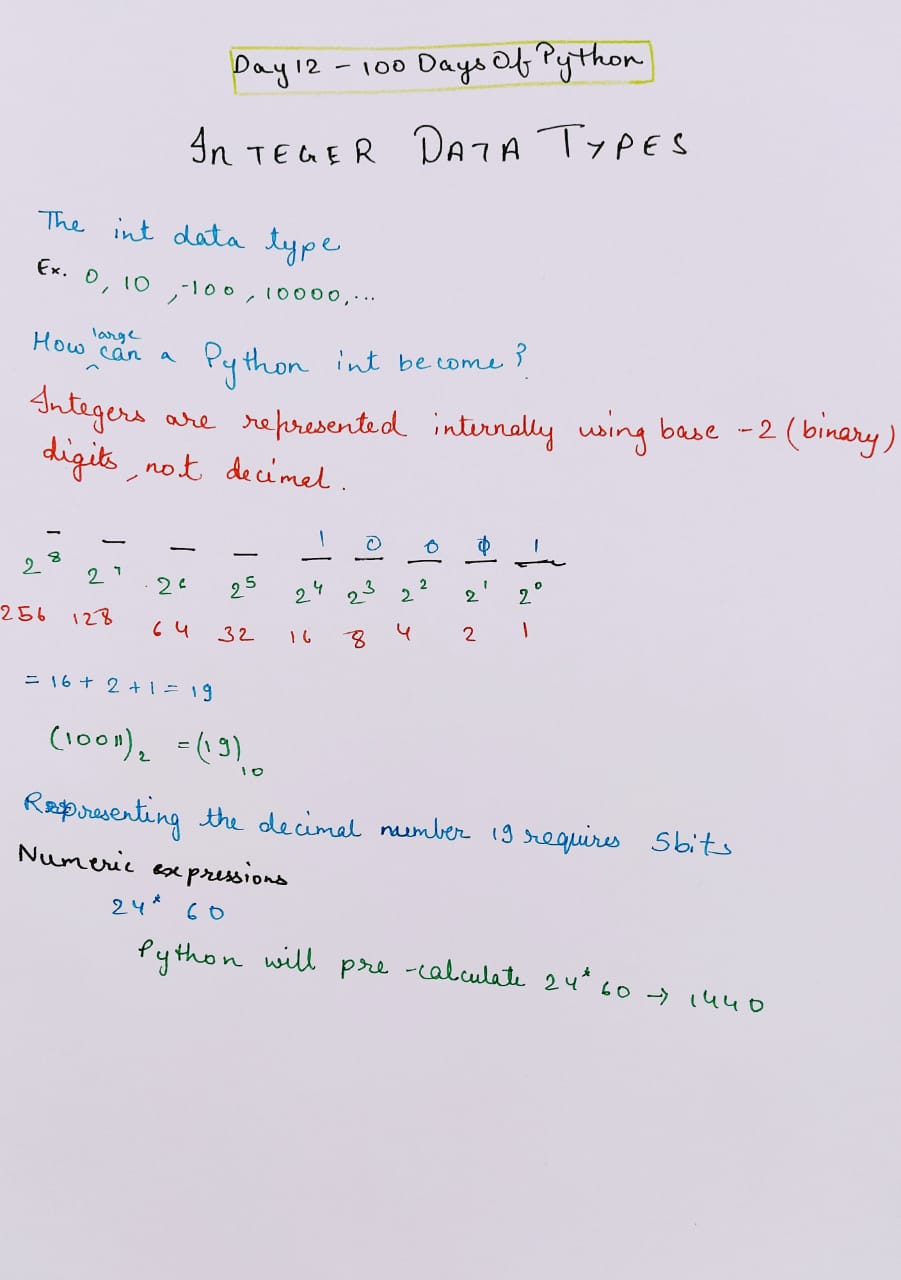 Day 12 - 100 Days Of Python
INTEGER DATA TYPES
The int data type
Ex. 0, 10, -100, 10000,...
How large can a Python int become?
Integers are represented internally using base -2 (binary)
digits, not decimal.
_ _ _ _ 1 0 0 0 1
2⁸ 2⁷ 2⁶ 2⁵ 2⁴ 2³ 2² 2¹ 2⁰
256 128 64 32 16 8 4 2 1
= 16 + 2 + 1 = 19
(10011)₂ = (19)₁₀
Representing the decimal number 19 requires 5bits
Numeric expressions
24 * 60
Python will pre-calculate 24 * 60 → 1440